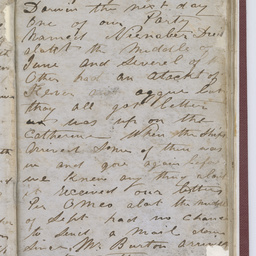 Darwin the next day
one of our Party
named Neinaber Died
about the middle of
June and several of
Other had an attackt of
Fever and ague but
they all got better
was up on the
Catherine When the Ship
arrived Some of them was
in and gone again before
we knew any thing about
it received our letters
Per Omeo about the middle
of Sept had no chance
to send a mail down
since Mr. Burton arrived